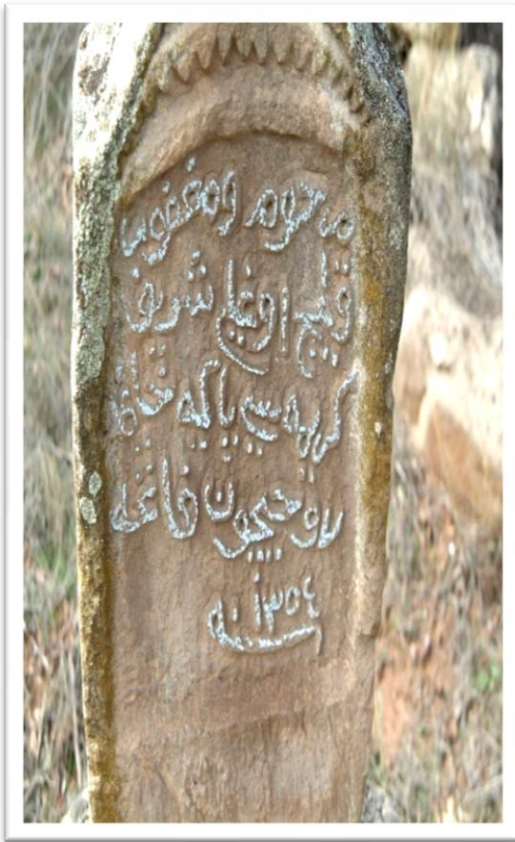 مرحوم ومغفوره
قليج اوغلى شريف
كريمه سي پاكيه خانم
روحيچون فاتحه
سنه ١٣٥٤